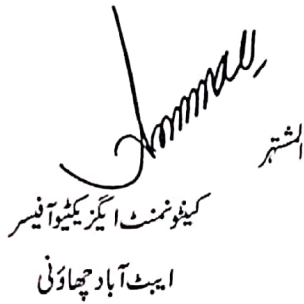 المشتہر
کینٹونمنٹ ایگزیکٹیو آفیسر
ایبٹ آباد چھاؤنی